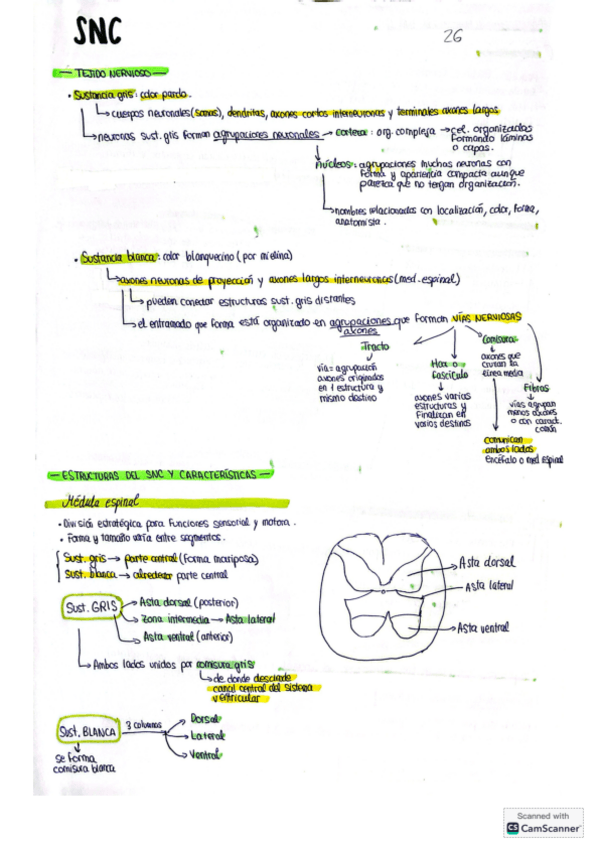 SNC
26
— TEJIDO NERVIOSO —
• Sustancia gris: color pardo.
↳ cuerpos neuronales (somas), dendritas, axones cortos interneuronas y terminales axones largos
↳ neuronas sust. gris forman agrupaciones neuronales → corteza: org. compleja → cel. organizadas
formando láminas
o capas.
Núcleos: agrupaciones muchas neuronas con
forma y apariencia compacta aunque
parezca que no tengan organización.
↳ nombres relacionados con localización, color, forma,
anatomista.
• Sustancia blanca: color blanquecino (por mielina)
↳ axones neuronas de proyección y axones largos interneuronas (med. espinal)
↳ pueden conectar estructuras sust. gris distantes
↳ el entramado que forma está organizado en agrupaciones que forman VÍAS NERVIOSAS
axones
Tracto
vía = agrupación
axones originados
en 1 estructura y
mismo destino
Haz o
Fascículo
axones varias
estructuras y
finalizan en
varios destinos
Comisura
axones que
cruzan la
línea media
comunican
ambos lados
encéfalo o med espinal
Fibras
vías agrupan
menos axones
o con caract.
común
— ESTRUCTURAS DEL SNC Y CARACTERÍSTICAS —
Médula espinal
• División estratégica para funciones sensorial y motora.
• Forma y tamaño varía entre segmentos.
Sust. gris → parte central (forma mariposa)
Sust. blanca → alrededor parte central
Sust. GRIS
→ Asta dorsal (posterior)
→ Zona intermedia → Asta lateral
→ Asta ventral (anterior)
↳ Ambos lados unidos por comisura gris
↳ de donde desciende
canal central del sistema
ventricular
Asta dorsal
Asta lateral
Asta ventral
Sust. BLANCA
3 columnas
Dorsal
Lateral
Ventral
se forma
comisura blanca
Scanned with
CS CamScanner